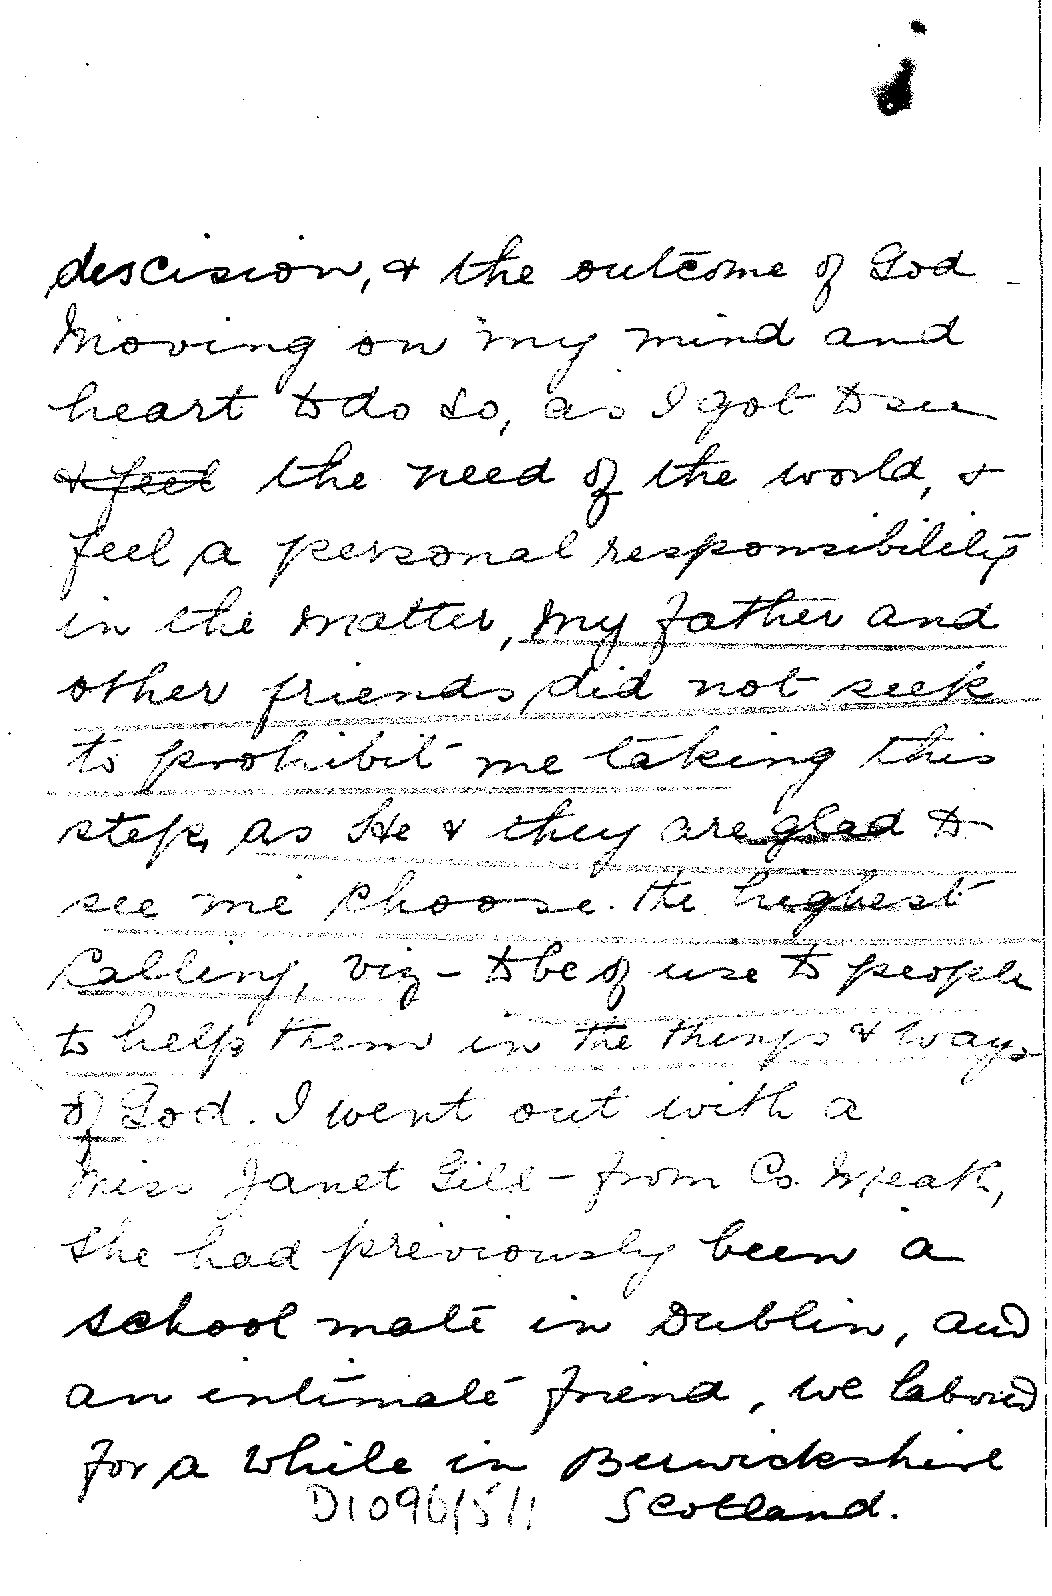 descision, & the outcome of God
Moving on my mind and
heart to do so, as I got to see
& feel the need of the world, &
feel a personal responsibility
in the matter, my father and
other friends did not seek
to prohibit me taking this
step, as He & they are glad to
see me choose. the highest
Calling, viz - to be of use to people
to help them in the things & ways
of God. I went out with a
Miss Janet Gill - from Co. Meath,
She had previously been a
school mate in Dublin, and
an intimate friend, we labored
for a while in Berwickshire
Scotland.
D1096/5/1